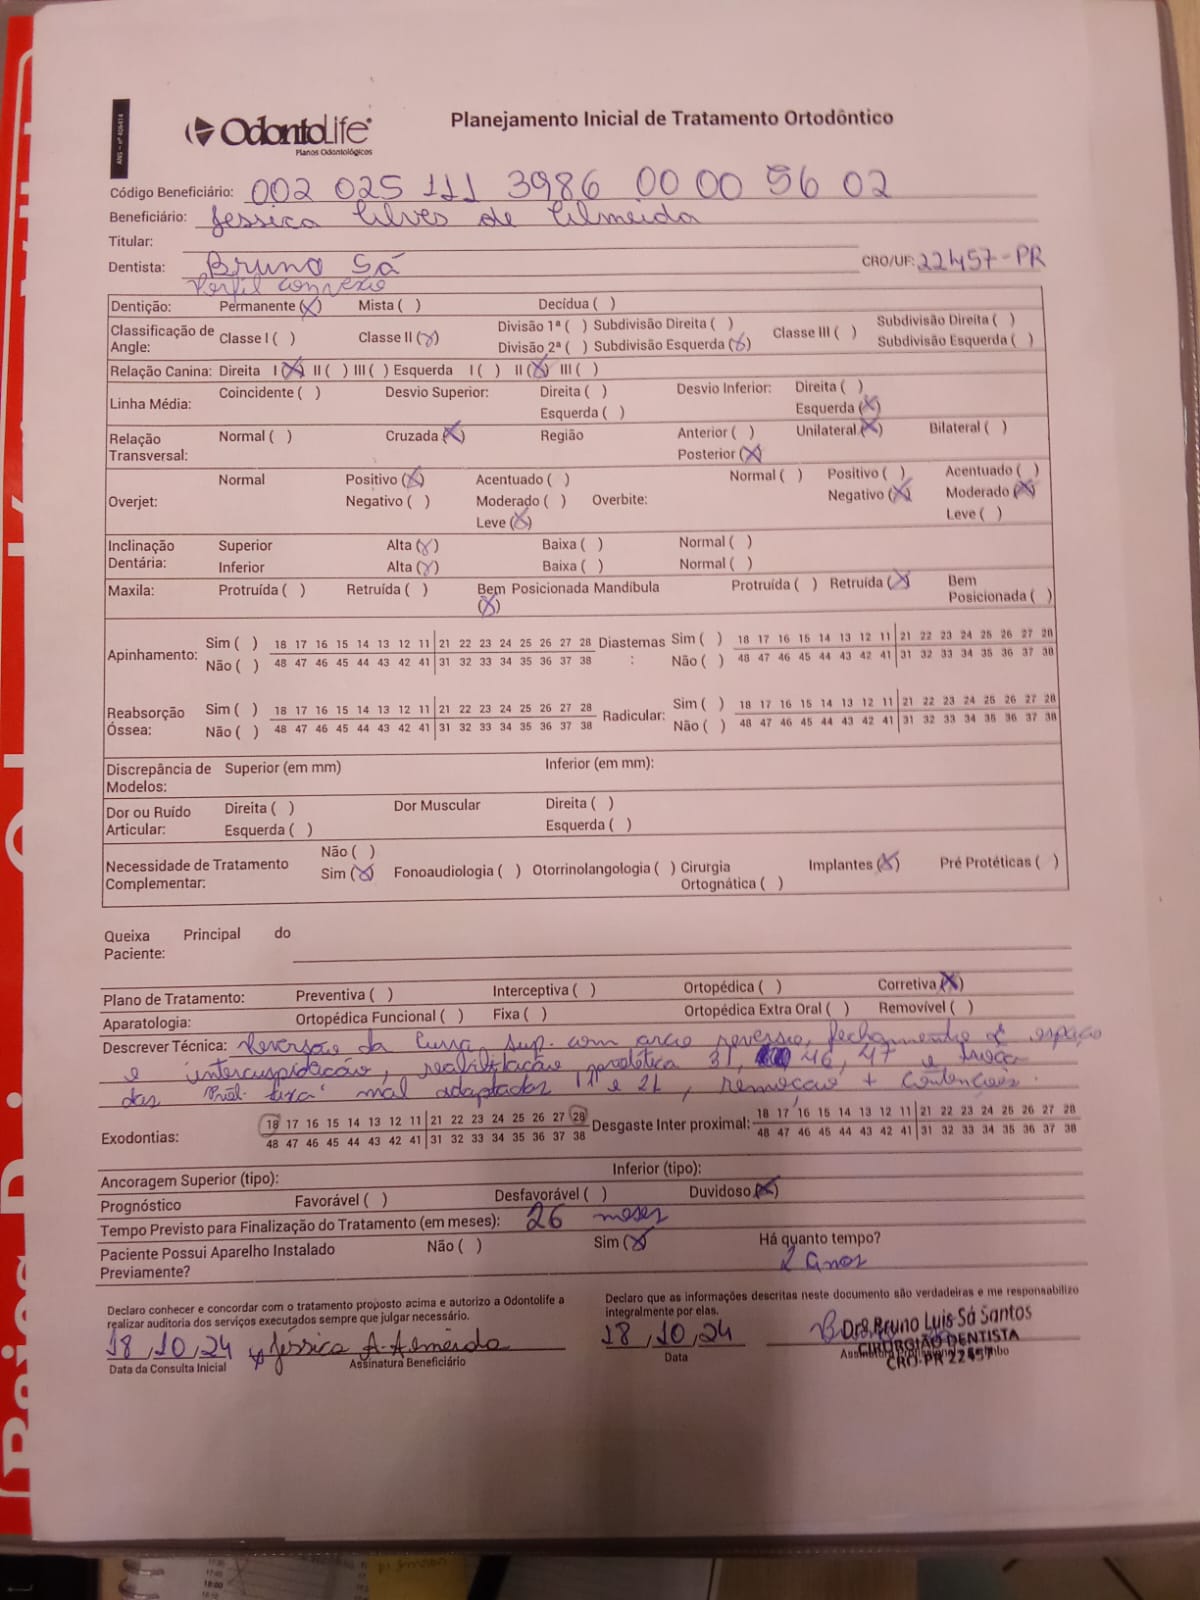 ANS - nº 406414
OdontoLife
Planos Odontológicos
Planejamento Inicial de Tratamento Ortodôntico
Código Beneficiário: 002 025 111 3986 00 00 56 02
Beneficiário: Jessica Alves de Almeida
Titular:
Dentista: Bruno Sá CRO/UF: 22457-PR
Perfil convexo
Dentição: Permanente (X) Mista ( ) Decídua ( )
Classificação de Angle: Classe I ( ) Classe II (X) Divisão 1ª ( ) Subdivisão Direita ( ) Classe III ( ) Subdivisão Direita ( )
Divisão 2ª ( ) Subdivisão Esquerda (X) Subdivisão Esquerda ( )
Relação Canina: Direita I (X) II ( ) III ( ) Esquerda I ( ) II (X) III ( )
Linha Média: Coincidente ( ) Desvio Superior: Direita ( ) Desvio Inferior: Direita ( )
Esquerda ( ) Esquerda (X)
Relação Transversal: Normal ( ) Cruzada (X) Região Anterior ( ) Unilateral (X) Bilateral ( )
Posterior (X)
Overjet: Normal Positivo (X) Acentuado ( ) Overbite: Normal ( ) Positivo ( ) Acentuado ( )
Negativo ( ) Moderado ( ) Negativo (X) Moderado (X)
Leve (X) Leve ( )
Inclinação Dentária: Superior Alta (X) Baixa ( ) Normal ( )
Inferior Alta (X) Baixa ( ) Normal ( )
Maxila: Protruída ( ) Retruída ( ) Bem Posicionada (X) Mandíbula Protruída ( ) Retruída (X) Bem Posicionada ( )
Apinhamento: Sim ( ) 18 17 16 15 14 13 12 11 21 22 23 24 25 26 27 28 Diastemas: Sim ( ) 18 17 16 15 14 13 12 11 21 22 23 24 25 26 27 28
Não ( ) 48 47 46 45 44 43 42 41 31 32 33 34 35 36 37 38 Não ( ) 48 47 46 45 44 43 42 41 31 32 33 34 35 36 37 38
Reabsorção Óssea: Sim ( ) 18 17 16 15 14 13 12 11 21 22 23 24 25 26 27 28 Radicular: Sim ( ) 18 17 16 15 14 13 12 11 21 22 23 24 25 26 27 28
Não ( ) 48 47 46 45 44 43 42 41 31 32 33 34 35 36 37 38 Não ( ) 48 47 46 45 44 43 42 41 31 32 33 34 35 36 37 38
Discrepância de Modelos: Superior (em mm) Inferior (em mm):
Dor ou Ruído Articular: Direita ( ) Dor Muscular Direita ( )
Esquerda ( ) Esquerda ( )
Necessidade de Tratamento Complementar: Não ( )
Sim (X) Fonoaudiologia ( ) Otorrinolangologia ( ) Cirurgia Ortognática ( ) Implantes (X) Pré Protéticas ( )
Queixa Principal do Paciente:
Plano de Tratamento: Preventiva ( ) Interceptiva ( ) Ortopédica ( ) Corretiva (X)
Aparatologia: Ortopédica Funcional ( ) Fixa ( ) Ortopédica Extra Oral ( ) Removível ( )
Descrever Técnica: Reversão da Curva Sup. com arco reverso, fechamento de espaço
e intercuspidação, reabilitação protética 31, 46, 47 e troca
das "Prót. fixa" mal adaptados 11 e 21, remoção + contenções.
Exodontias: 18 17 16 15 14 13 12 11 21 22 23 24 25 26 27 28 Desgaste Inter proximal: 18 17 16 15 14 13 12 11 21 22 23 24 25 26 27 28
48 47 46 45 44 43 42 41 31 32 33 34 35 36 37 38 48 47 46 45 44 43 42 41 31 32 33 34 35 36 37 38
Ancoragem Superior (tipo): Inferior (tipo):
Prognóstico Favorável ( ) Desfavorável ( ) Duvidoso (X)
Tempo Previsto para Finalização do Tratamento (em meses): 26 meses
Paciente Possui Aparelho Instalado Previamente? Não ( ) Sim (X) Há quanto tempo?
2 anos
Declaro conhecer e concordar com o tratamento proposto acima e autorizo a Odontolife a
realizar auditoria dos serviços executados sempre que julgar necessário.
Declaro que as informações descritas neste documento são verdadeiras e me responsabilizo
integralmente por elas.
18,10,24 x Jéssica A. Almeida
Data da Consulta Inicial Assinatura Beneficiário
18,10,24
Data
Drº. Bruno Luis Sá Santos
CIRURGIÃO DENTISTA
CRO-PR 22457